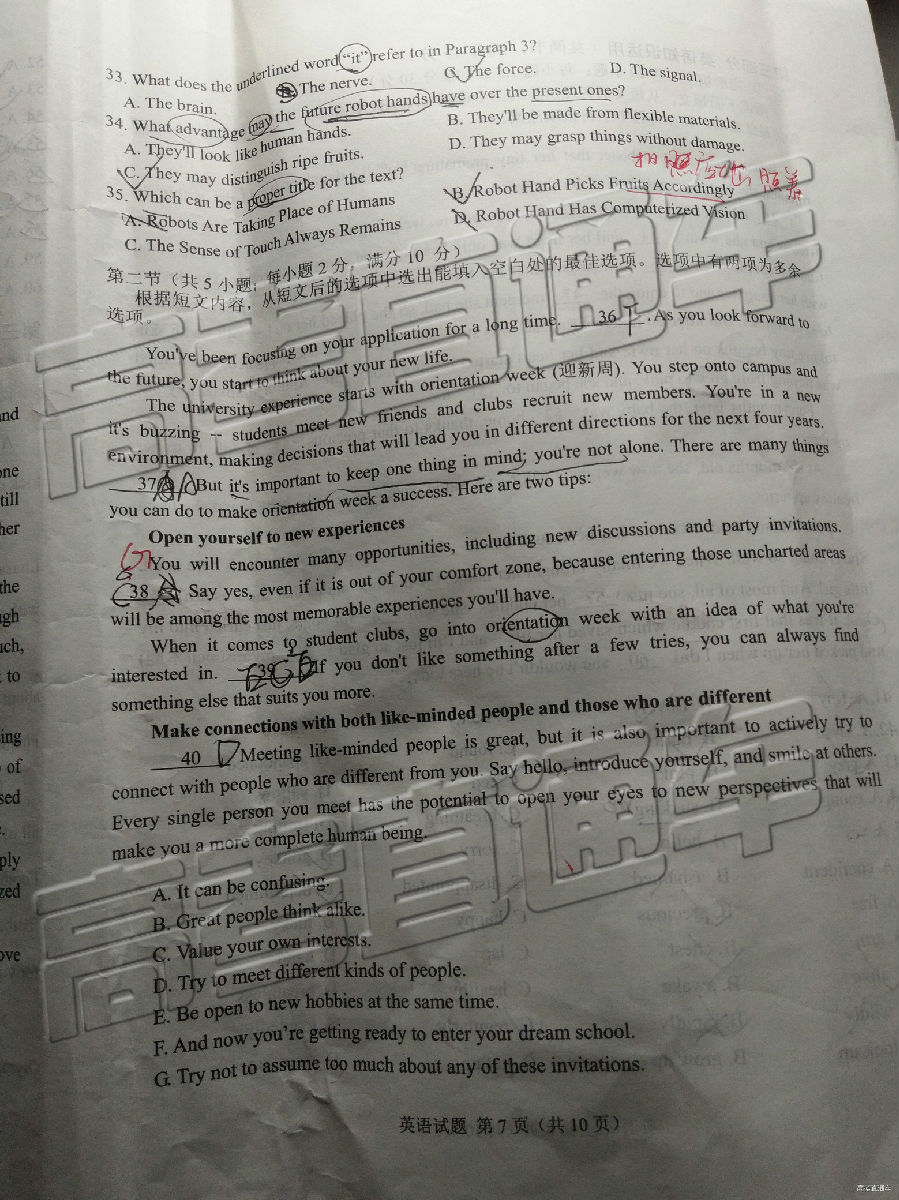 33. What does the underlined word "it" refer to in Paragraph 3?
A. The brain. B. The nerve. C. The force. D. The signal.
34. What advantage may the future robot hands have over the present ones?
A. They'll look like human hands. B. They'll be made from flexible materials.
C. They may distinguish ripe fruits. D. They may grasp things without damage.
35. Which can be a proper title for the text?
A. Robots Are Taking Place of Humans B. Robot Hand Picks Fruits Accordingly
C. The Sense of Touch Always Remains D. Robot Hand Has Computerized Vision
第二节（共 5 小题；每小题 2 分，满分 10 分）
根据短文内容，从短文后的选项中选出能填入空白处的最佳选项。选项中有两项为多余
选项。
You've been focusing on your application for a long time. 36 F . As you look forward to
the future, you start to think about your new life.
The university experience starts with orientation week (迎新周). You step onto campus and
it's buzzing -- students meet new friends and clubs recruit new members. You're in a new
environment, making decisions that will lead you in different directions for the next four years.
37 A But it's important to keep one thing in mind; you're not alone. There are many things
you can do to make orientation week a success. Here are two tips:
Open yourself to new experiences
G You will encounter many opportunities, including new discussions and party invitations.
38 Say yes, even if it is out of your comfort zone, because entering those uncharted areas
will be among the most memorable experiences you'll have.
When it comes to student clubs, go into orientation week with an idea of what you're
interested in. 39 If you don't like something after a few tries, you can always find
something else that suits you more.
Make connections with both like-minded people and those who are different
40 D Meeting like-minded people is great, but it is also important to actively try to
connect with people who are different from you. Say hello, introduce yourself, and smile at others.
Every single person you meet has the potential to open your eyes to new perspectives that will
make you a more complete human being.
A. It can be confusing.
B. Great people think alike.
C. Value your own interests.
D. Try to meet different kinds of people.
E. Be open to new hobbies at the same time.
F. And now you're getting ready to enter your dream school.
G. Try not to assume too much about any of these invitations.
英语试题 第 7 页（共 10 页）
高考直通车
高考直通车
nd
one
till
her
the
ugh
uch,
to
ing
of
sed
ply
zed
ove